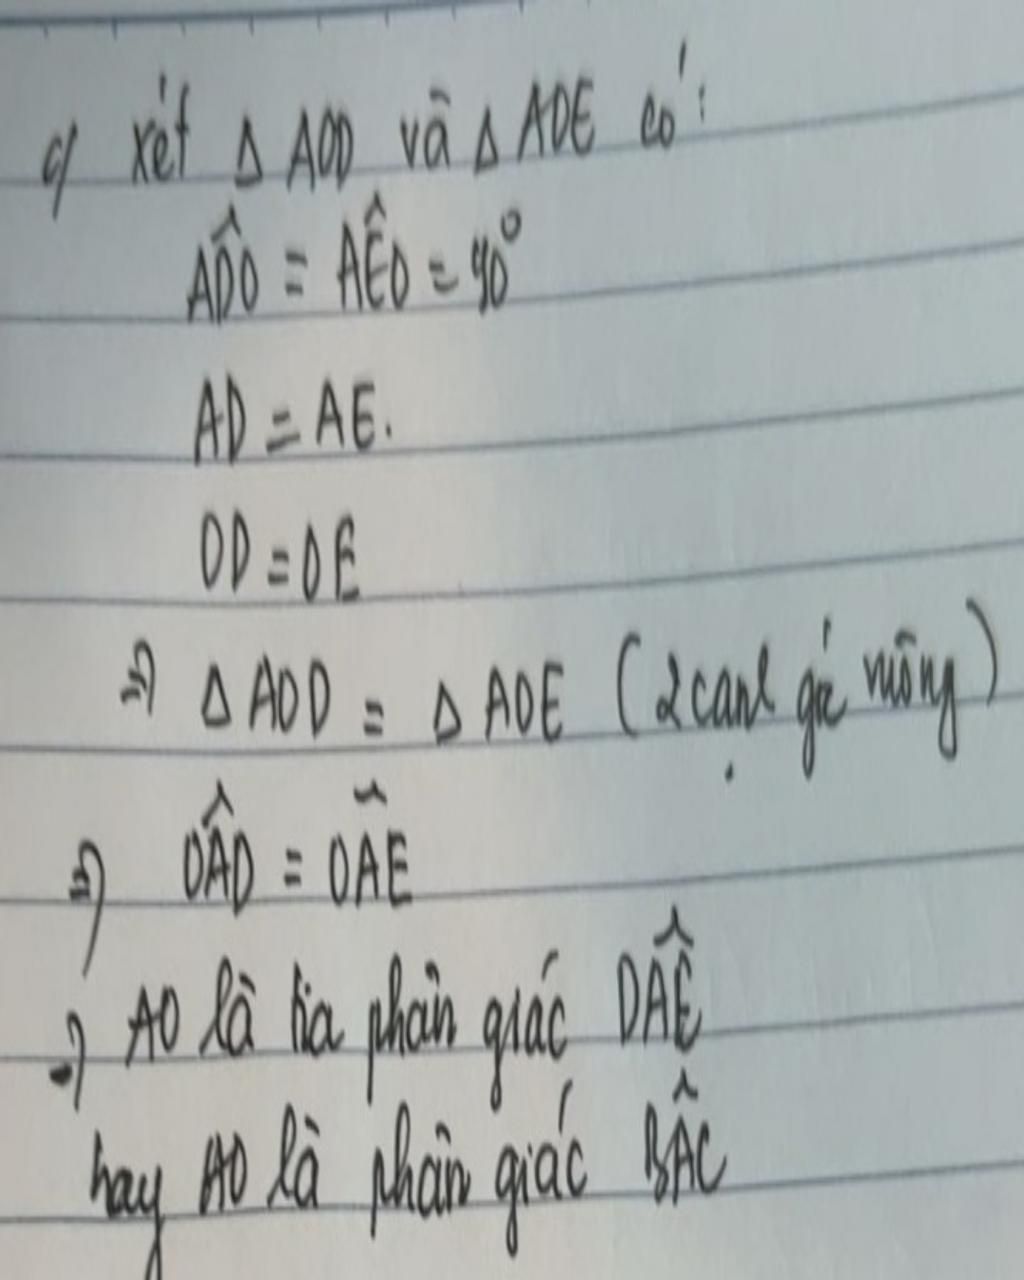 c/ xét Δ AOD và Δ AOE có:
AD̂O = AÊO = 90°
AD = AE.
OD = OE
=> Δ AOD = Δ AOE (2 cạnh góc vuông)
=> OÂD = OÂE
=> AO là tia phân giác DÂE
hay AO là phân giác BÂC